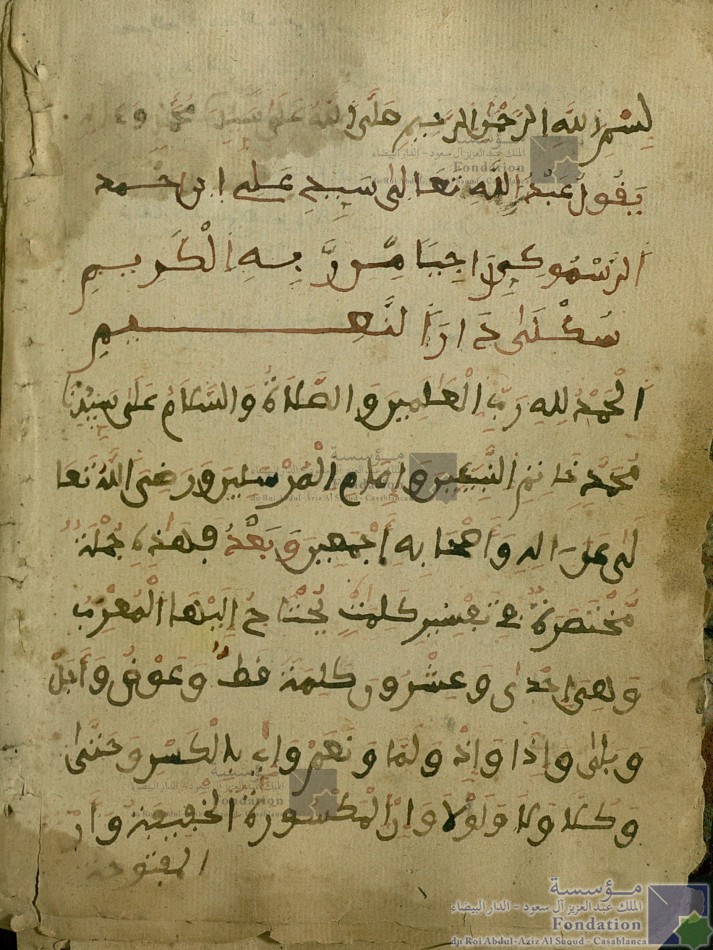 بِسْمِ اللَّهِ الرَّحْمٰنِ الرَّحِيمِ صَلَّى اللَّهُ عَلَى سَيِّدِنَا مُحَمَّدٍ وَءَا
يَقُولُ عَبْدُ اللَّه تعالى سيدي علي ابن احمد
الرسموكي رَاجِيًا مِنْ رَّبِّهِ الْكَرِيمِ
سُكْنَى دَارَ النَّعِيمِ
اَلْحَمْدُ لِلهِ رَبِّ الْعَالَمِينَ وَالصَّلَاةُ وَالسَّلَامُ عَلَى سَيِّدِنَا
مُحَمَّدٍ خَاتِمِ النَّبِيِّينَ وَإِمَامِ الْمُرْسَلِينَ وَرَضِيَ اللَّهُ تَعَا
لَى عَنْ ءالِهِ وَأَصْحَابِهِ أَجْمَعِينَ وَبَعْدُ فَهَذِهِ جُمْلَةٌ
مُّخْتَصَرَةٌ فِي تَفْسِيرِ كَلِمَاتٍ يُحْتَاجُ إِلَيْهَا الْمُعْرِبُ
وَهِيَ إِحْدَى وَعِشْرُونَ كَلِمَة قَطُّ وَعَوْضُ وَأَجَلْ
وَبَلَى وَإِذَا وَإِذْ وَلَمَّا وَنَعَمْ وَإِي بِالْكَسْرِ وَحَتَّى
وَكَلَّا وَلَا وَلَوْلَا وَإِنْ الْمَكْسُورَةُ الْخَفِيفَة وَأَنْ
المفتوحة
مؤسسة
الملك عبد العزيز آل سعود - الدار البيضاء
Fondation
du Roi Abdul-Aziz Al Saoud - Casablanca